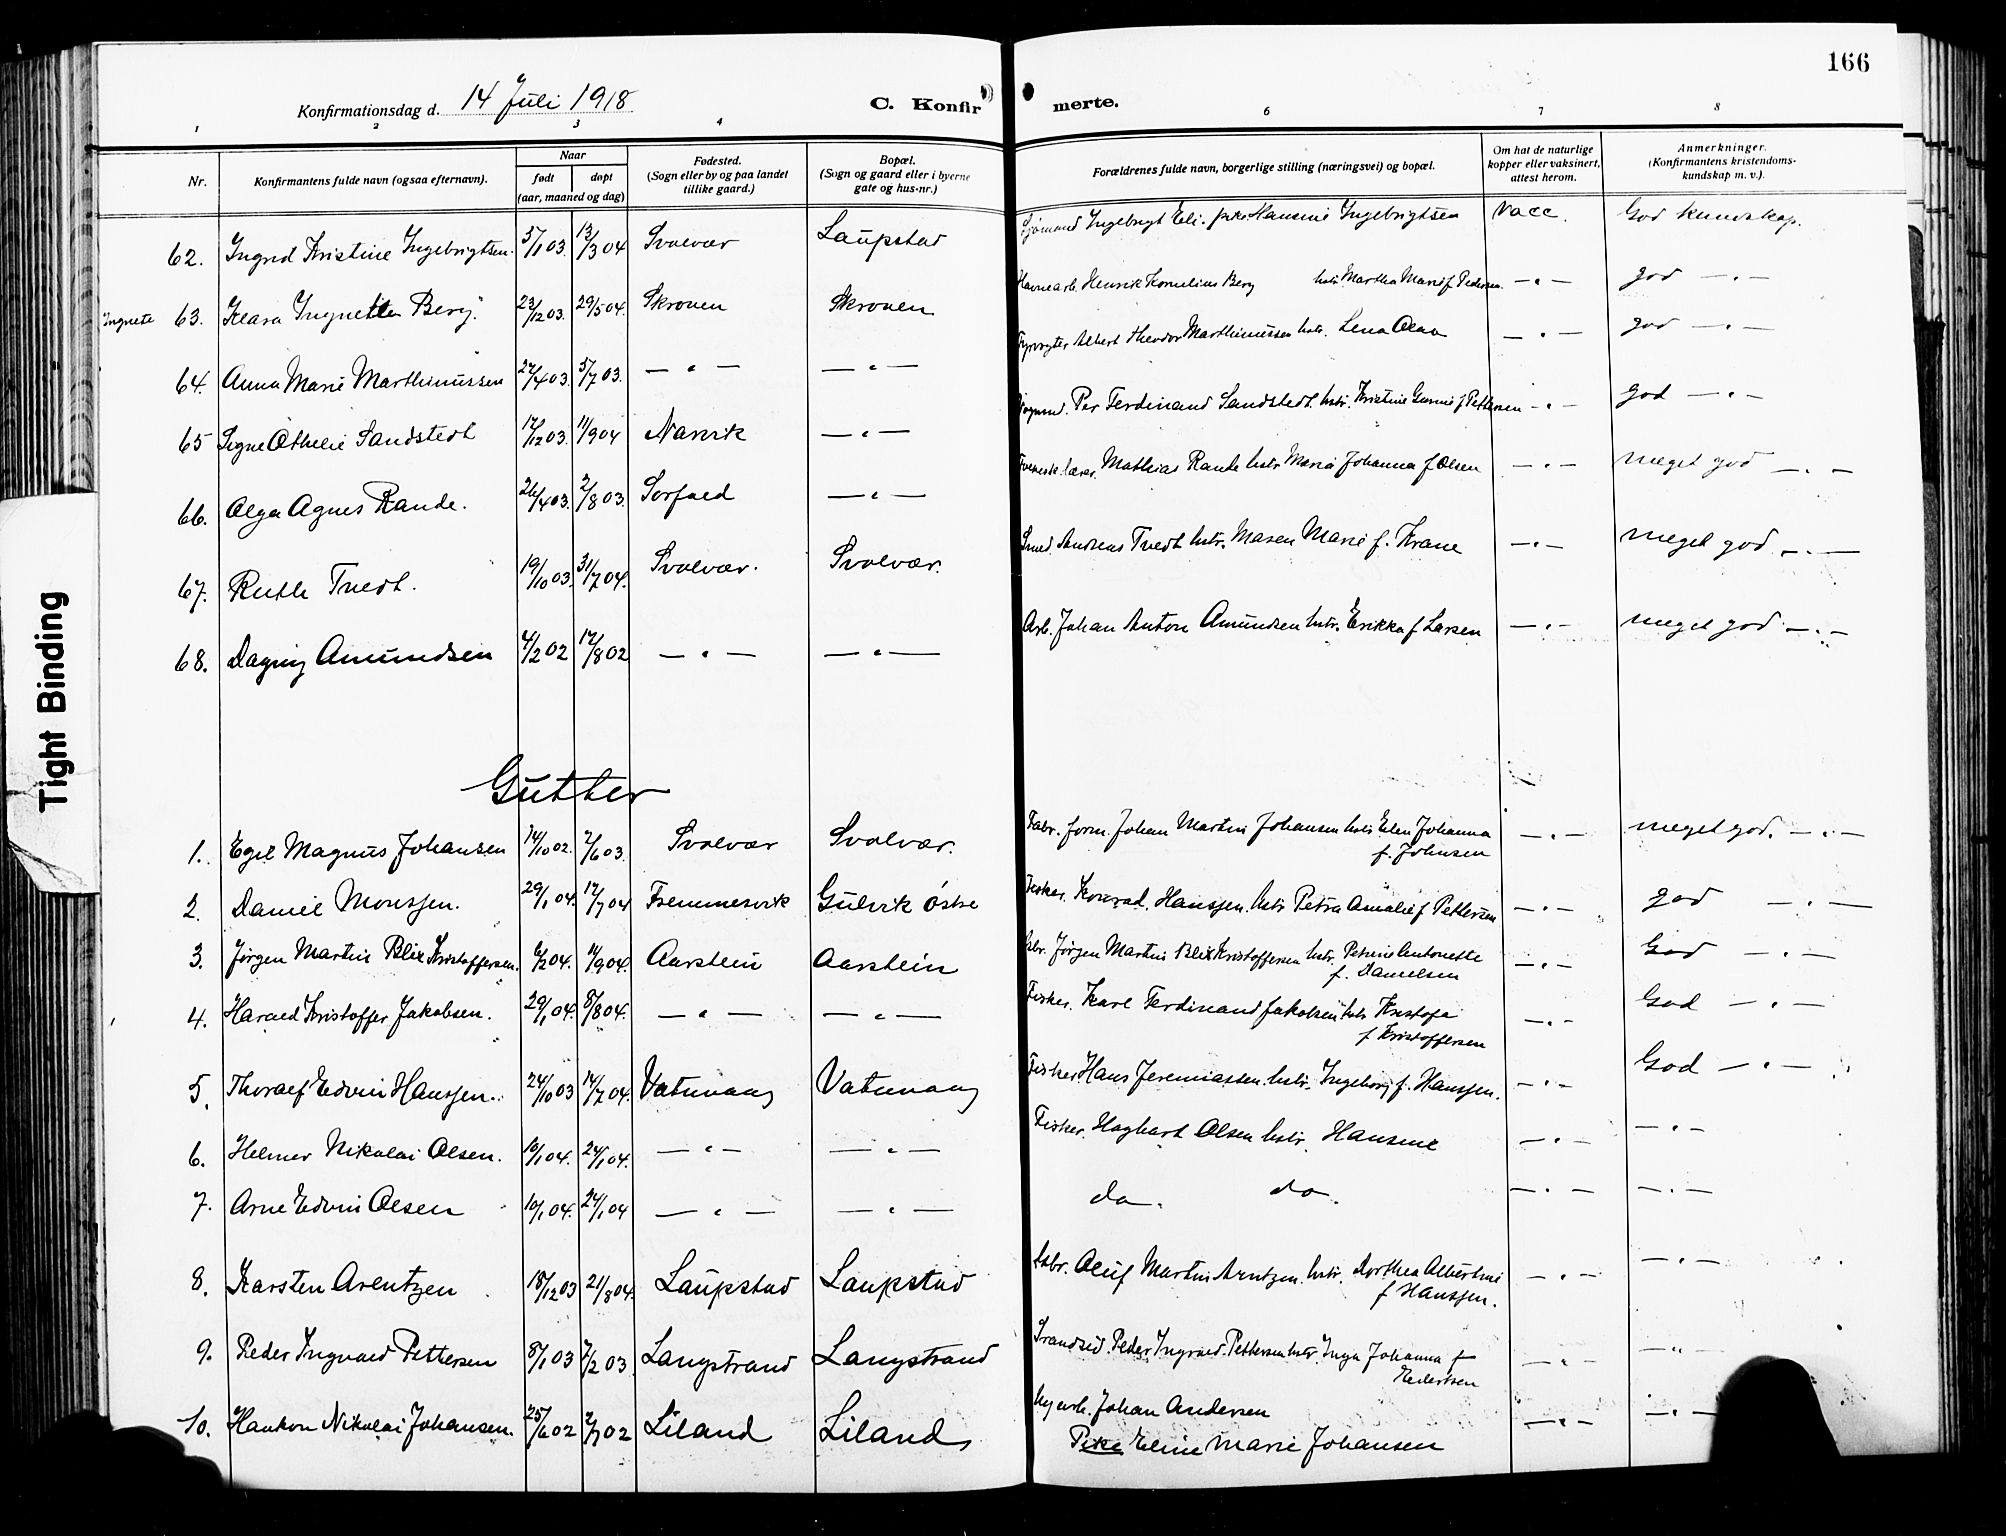 166
Konfirmationsdag d. 14 Juli 1918
C. Konfirmerte.
1 2 3 4 6 7 8
Nr.
Konfirmantens fulde navn (ogsaa efternavn).
Naar
født døpt
(aar, maaned og dag)
Fødested.
(Sogn eller by og paa landet
tillike gaard.)
Bopæl.
(Sogn og gaard eller i byerne
gate og hus-nr.)
Forældrenes fulde navn, borgerlige stilling (næringsvei) og bopæl.
Om hat de naturlige
kopper eller vaksinert,
attest herom.
Anmerkninger.
(Konfirmantens kristendoms-
kundskap m. v.).
62. Ingrid Kristine Ingebrigtsen. 5/1 03. 13/3 04 Svolvær Laupstad Sjømand Ingebrigt Eli. pike Hansine Ingebrigtsen Vacc. God kundskap.
Ingnete 63. Klara Ingnette Berg. 23/12 03. 29/5 04. Skroven Skroven Havnearb. Henrik Kornelius Berg hstr Martha Marie f Pedersen — " — god — " —
64. Anna Marie Marthinussen 27/4 03. 5/7 03. — " — — " — Fyrvogter Albert Theodor Marthinussen hstr. Lena Olava — " — god — " —
65 Signe Othelie Sandstedt 17/12 03. 11/9 04 Narvik — " — Per Ferdinand Sandstedt hstr. Kristine Gurine f Pettersen — " — god — " —
66. Olga Agnes Rande. 26/4 03. 2/8 03. Sørfold — " — lærer Mathias Rande hstr Maria Johanna f Olsen — " — meget god — " —
67. Ruth Tvedt. 19/10 03. 31/7 04. Svolvær. Svolvær. Smed. Andreas Tvedt hstr. Maren Marie f. Krane — " — meget god — " —
68. Dagny Amundsen 4/2 02 17/8 02 — " — — " — Arb. Johan Anton Amundsen hstr. Erikka f Larsen — " — meget god — " —
Gutter
1. Egil Magnus Johansen 14/10 02. 7/6 03. Svolvær Svolvær. Fabr. form. Johan Martin Johansen hstr Elen Johanna — " — meget god. — " —
f. Johnsen
2. Daniel Monssen. 29/1 04. 17/7 04 Fremmesvik Gulvik østre Fisker. Konrad Hanssen. hstr Petra Amalie f Pettersen — " — god — " —
3. Jørgen Martin Blix Kristoffersen. 6/2 04. 11/9 04. Aarstein Aarstein Jørgen Martin Blix Kristoffersen hstr. Petrine Antonette — " — God — " —
f. Danielsen
4. Harald Kristoffer Jakobsen. 29/1 04. 8/8 04. — " — — " — Fisker. Karl Ferdinand Jakobsen hstr Kristofa — " — God — " —
f Kristoffersen
5. Thoralf Edvin Hanssen. 24/10 03 14/7 04. Vatervaag Vatervaag Fisker Hans Jeremiassen. hstr. Ingeborg f. Hanssen. — " — God — " —
6. Helmer Nikolai Olsen. 10/1 04. 24/1 04. — " — — " — Fisker. Hagbart Olsen hstr. Hansine — " — — " —
7. Arne Edvin Olsen 10/1 04. 24/1 04 — " — — " — do. do. — " — — " —
8. Karsten Arentzen 18/12 03 21/8 04. Laupstad Laupstad Oluf Martin Arntzen hstr. Dorthea Albertine — " — — " —
f Hanssen.
9. Peder Ingvald Pettersen 8/1 03 7/2 03. Langstrand Langstrand Strandsid. Peder Ingvald Pettersen hstr. Inga Johanna f — " — — " —
10. Haakon Nikolai Johansen. 25/6 02 2/7 02 Liland Liland Johan Andersen — " — — " —
Pike Eline Marie Johansen
Tight Binding